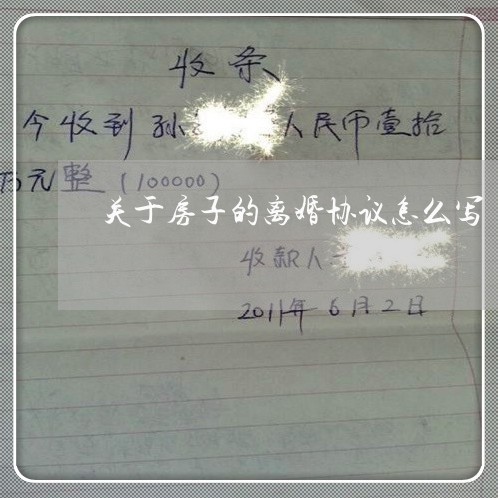 收条
今收到孙人民币壹拾
万元整（100000）
关于房子的离婚协议怎么写
收款人
2011年6月2日